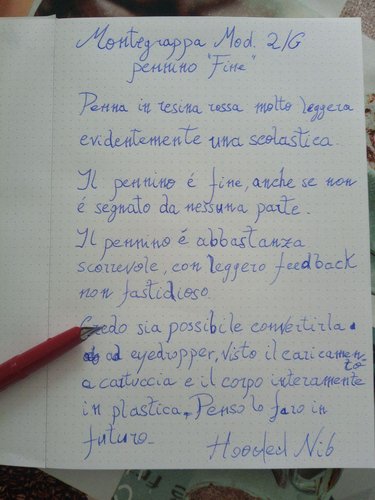 Montegrappa Mod. 2/G
pennino "Fine"
Penna in resina rossa molto leggera
evidentemente una scolastica.
Il pennino é fine, anche se non
é segnato da nessuna parte.
Il pennino é abbastanza
scorrevole, con leggero feedback
non fastidioso.
Credo sia possibile convertirla
ad eyedropper, visto il caricamento
a cartuccia e il corpo interamente
in plastica. Penso lo farò in
futuro.
Hooded Nib